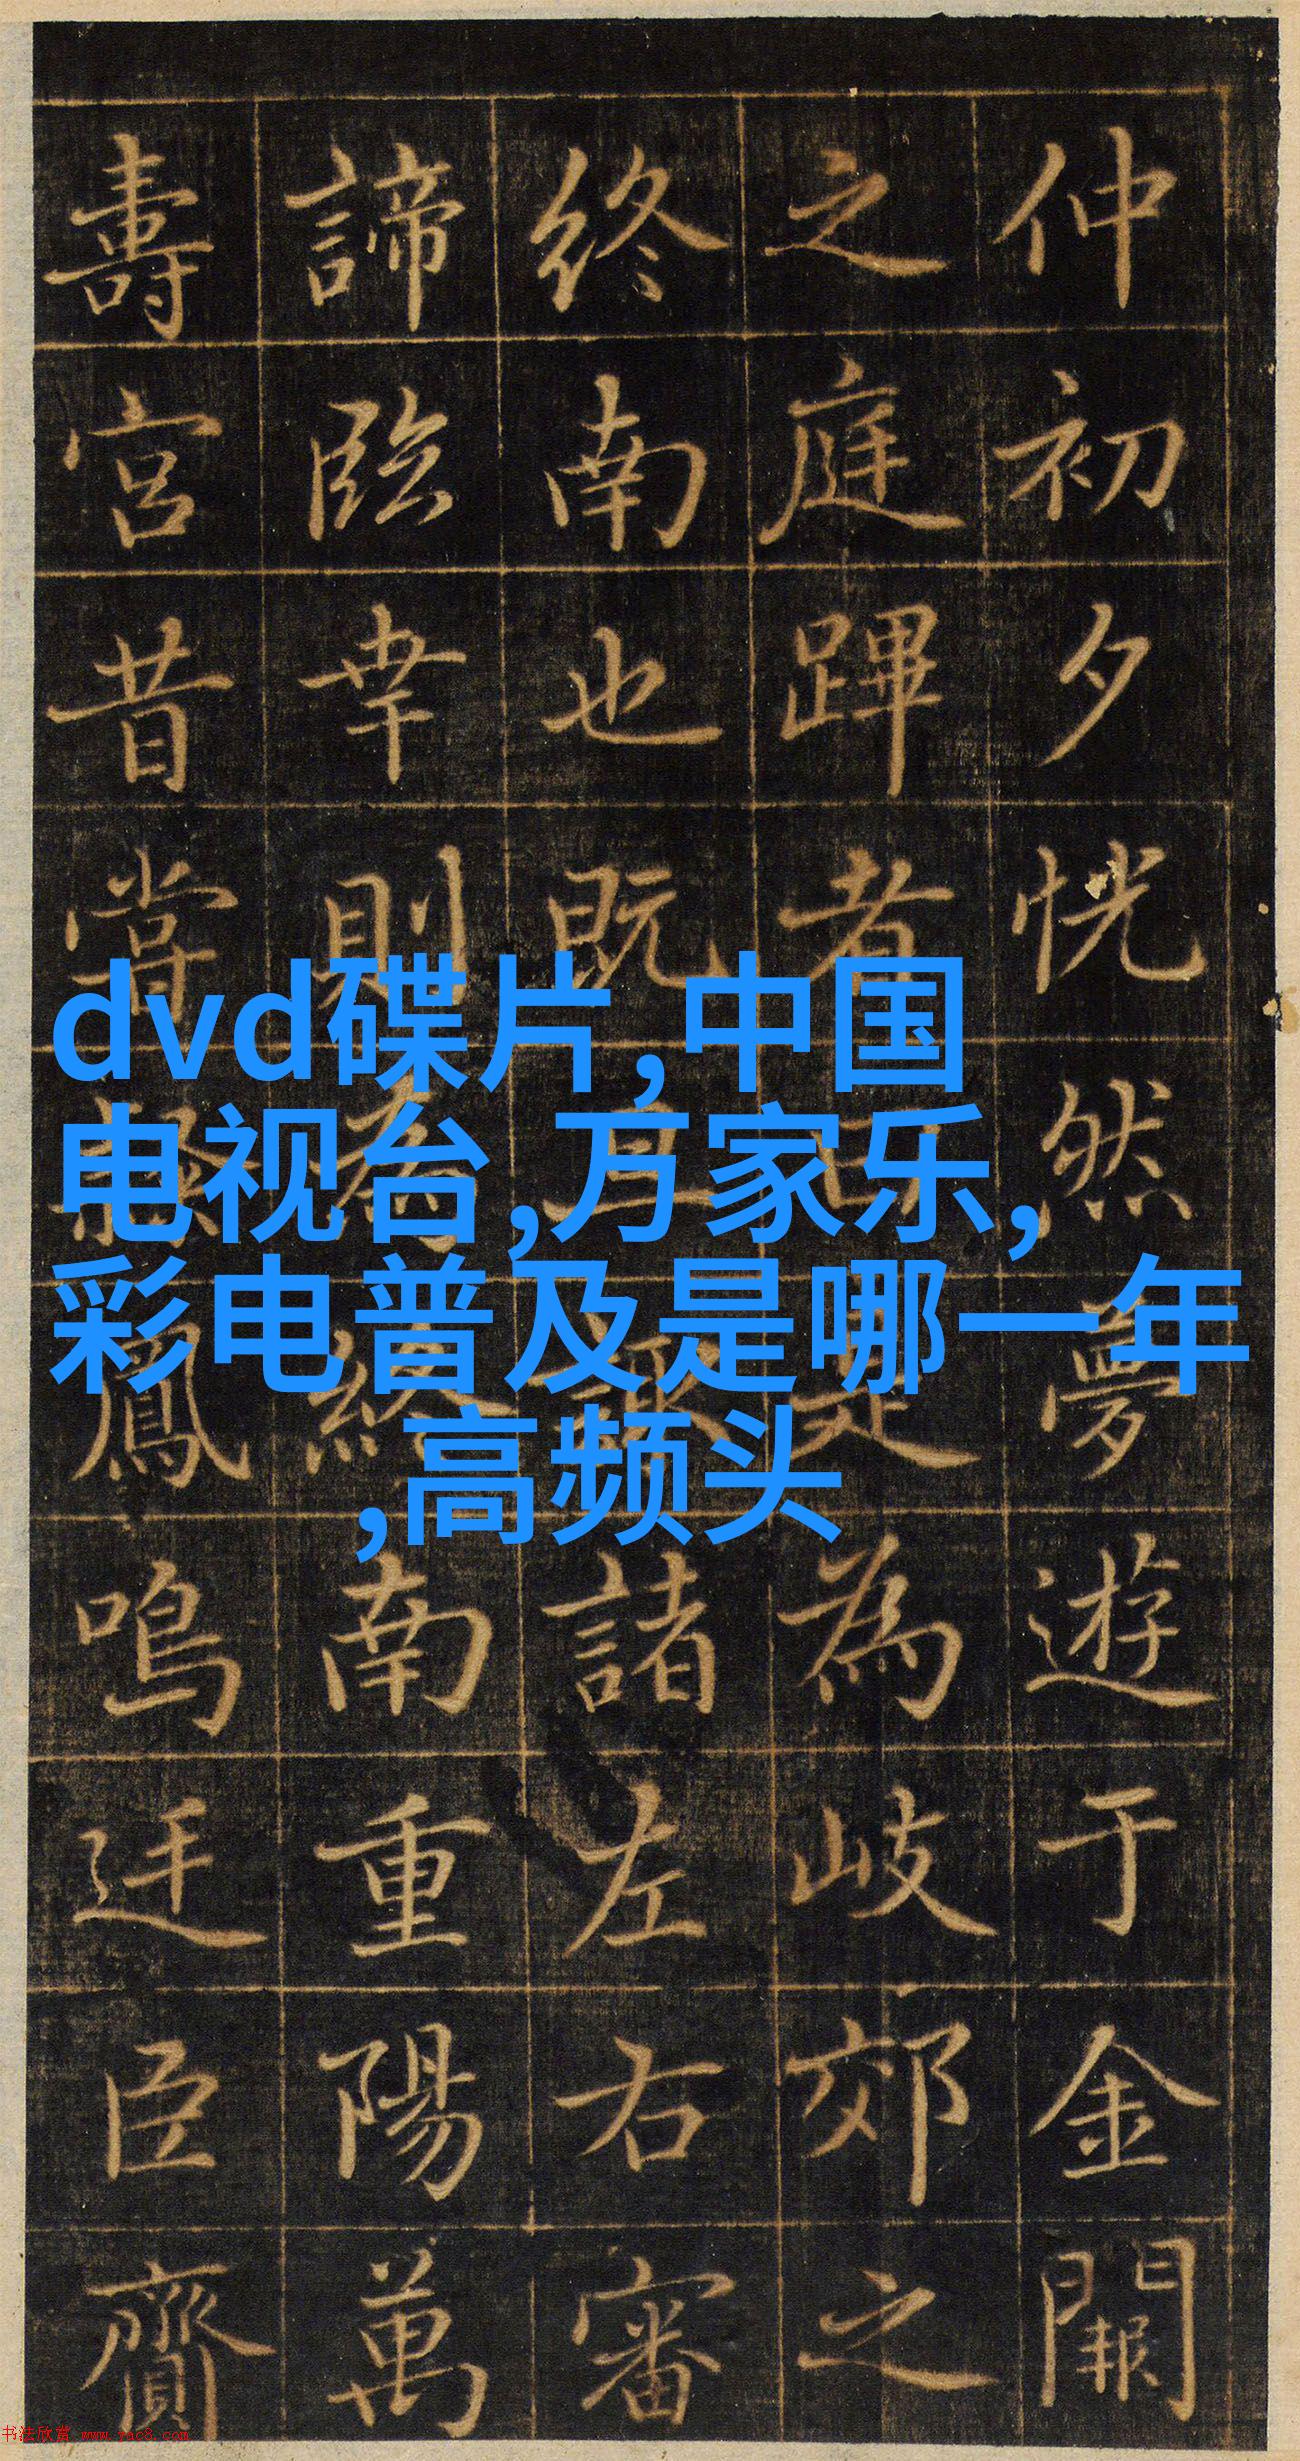 仲初夕恍然夢遊于金闕
之庭蹕者曰是為岐郊之
終南也既且諸左右審
諦臨幸則為終南重陽萬
壽宮昔嘗擬鳳鳴迓臣齎
dvd碟片,中国
电视台,万家乐,
彩电普及是哪一年
,高频头
书法欣赏 www.yac8.com